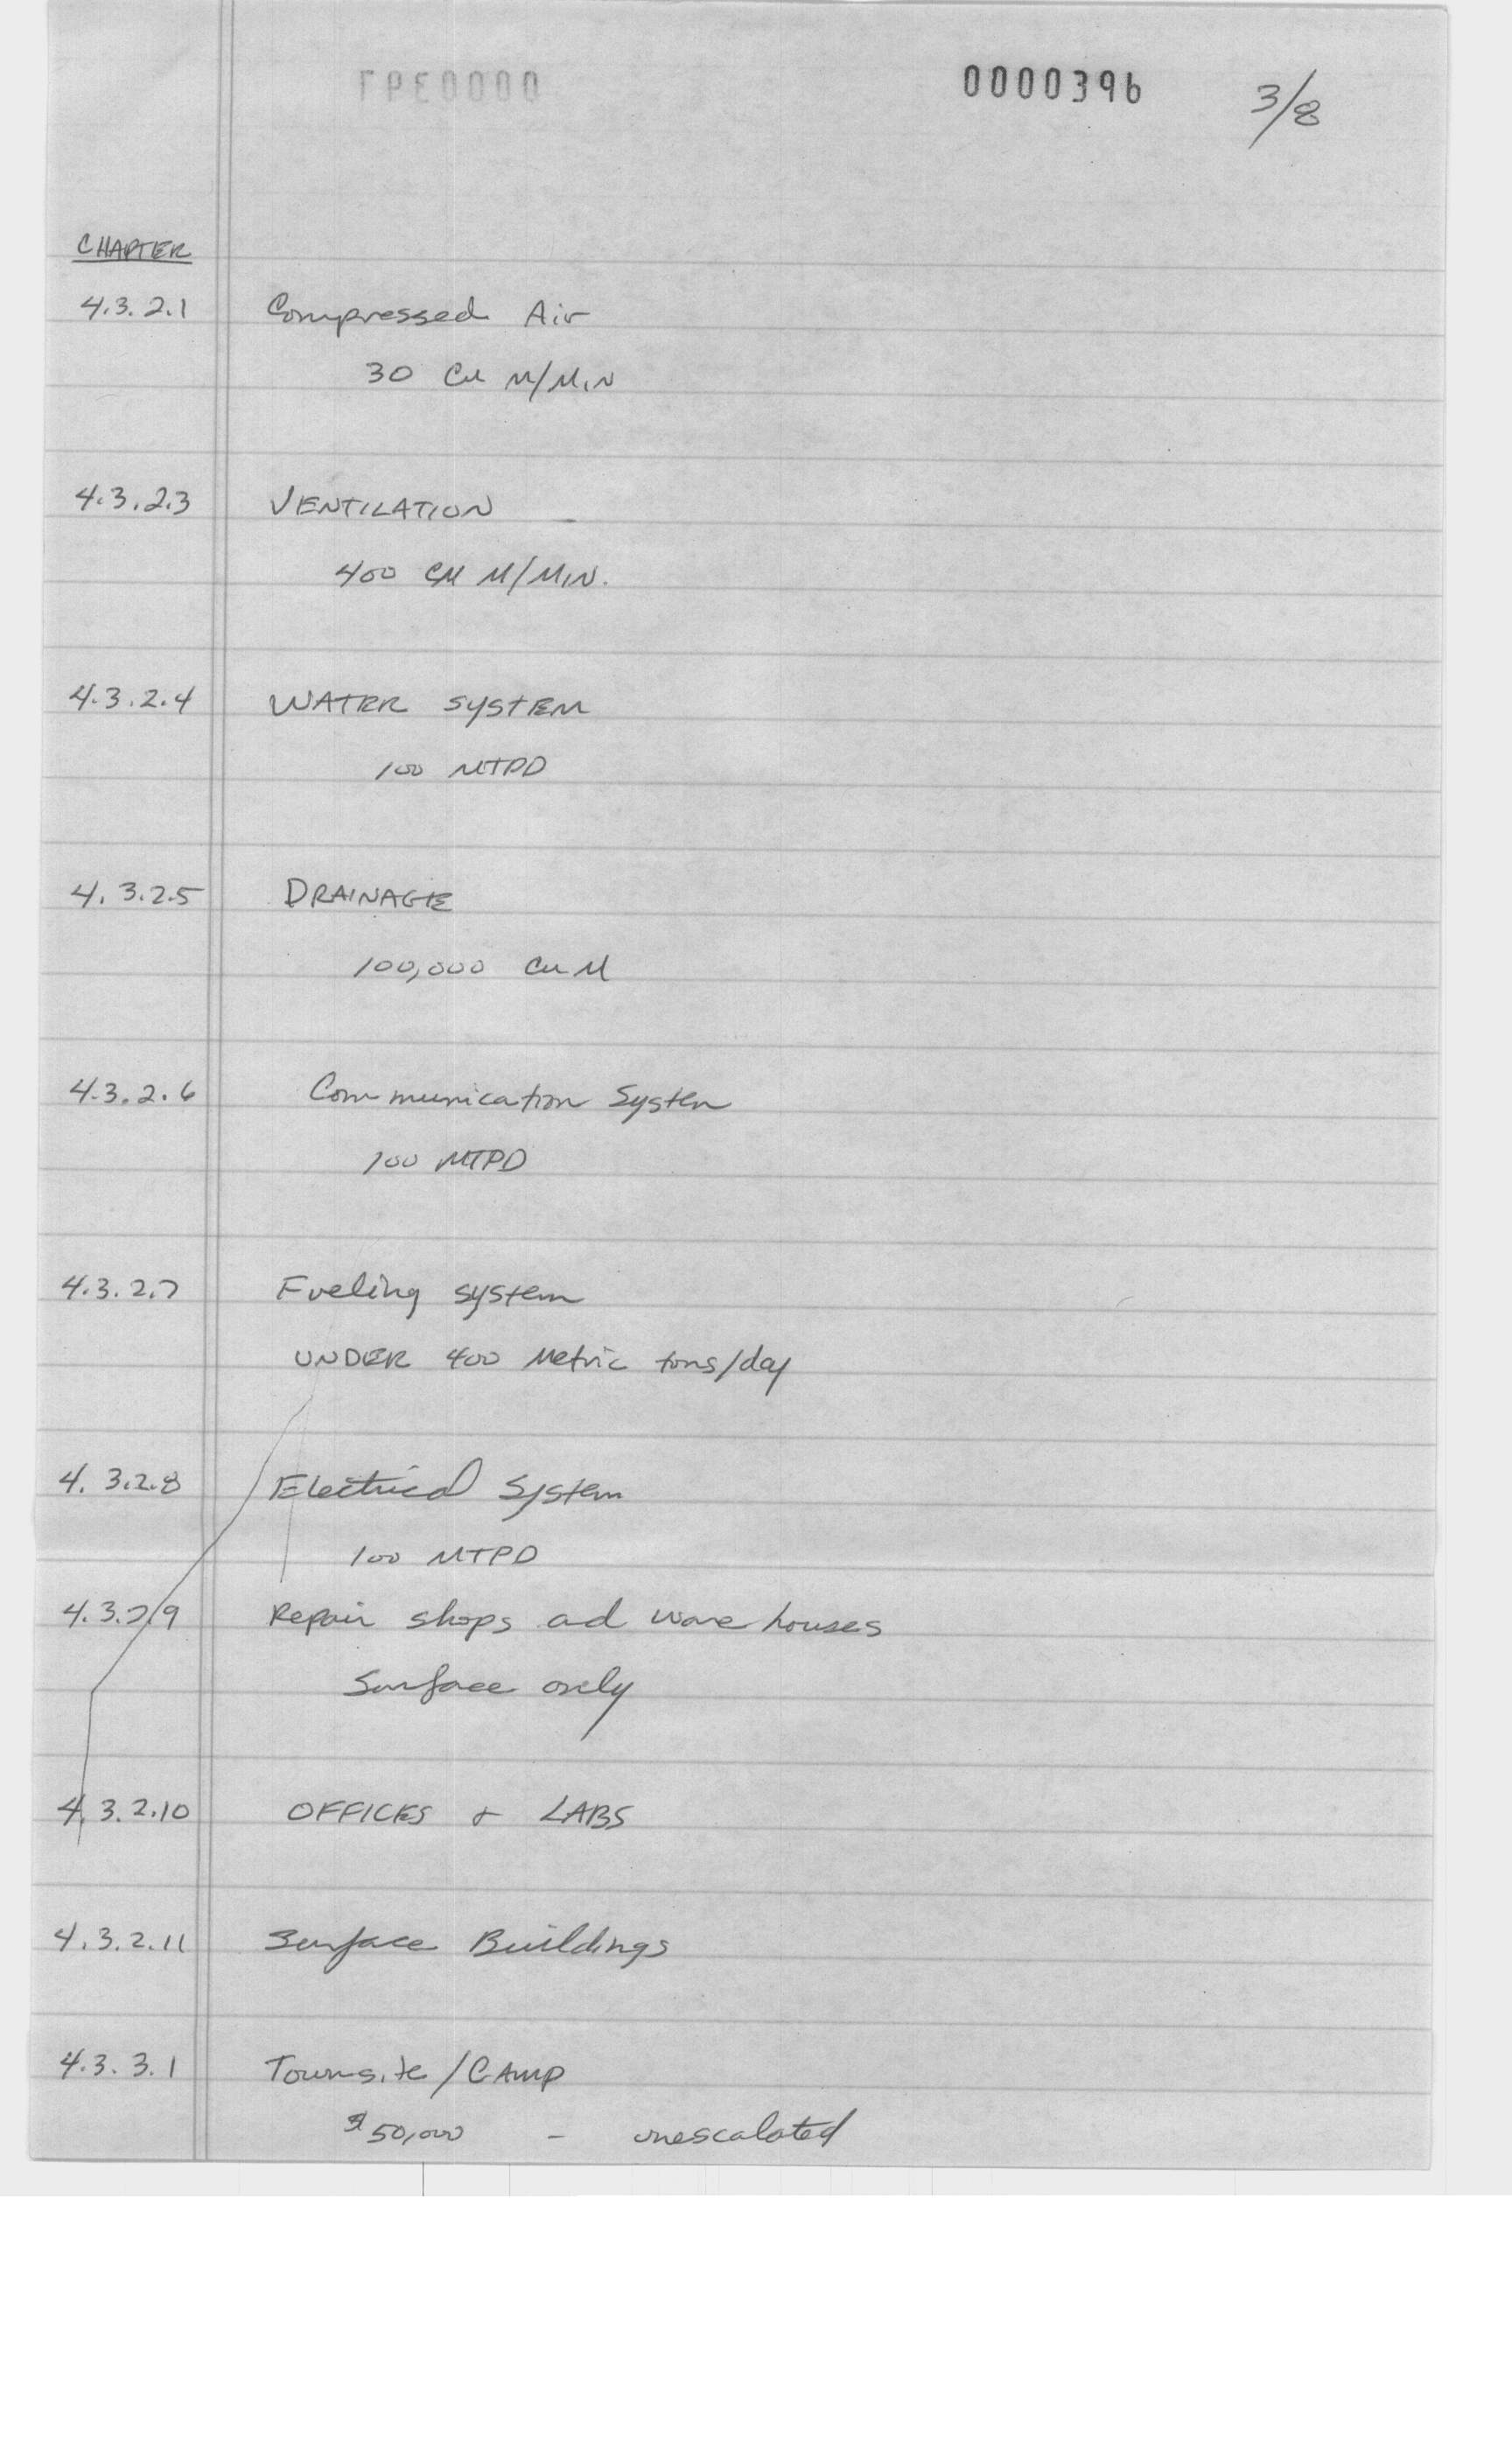 0000396 3/8
CHAPTER
4.3.2.1 Compressed Air
30 Cu M/MIN
4.3.2.3 VENTILATION
400 CU M/MIN.
4.3.2.4 WATER SYSTEM
100 MTPD
4.3.2.5 DRAINAGE
100,000 Cu M
4.3.2.6 Communication System
100 MTPD
4.3.2.7 Fueling system
UNDER 400 Metric tons/day
4.3.2.8 Electrical System
100 MTPD
4.3.2.9 Repair shops ad ware houses
Surface only
4.3.2.10 OFFICES & LABS
4.3.2.11 Surface Buildings
4.3.3.1 Townsite/CAMP
$50,000 - unescalated